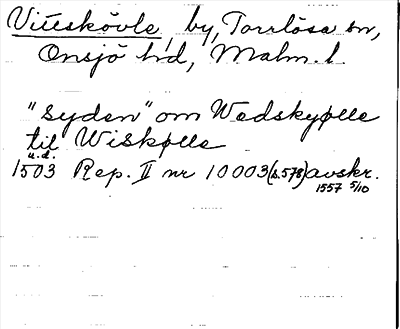 Viteskövle, by, Torrlösa sn,
Onsjö hd, Malm. l.
"Syden" om Wedskyølle
til Wiskølle
u.d.
1503 Rep. II nr 10003 (s.578) avskr.
1557 5/10